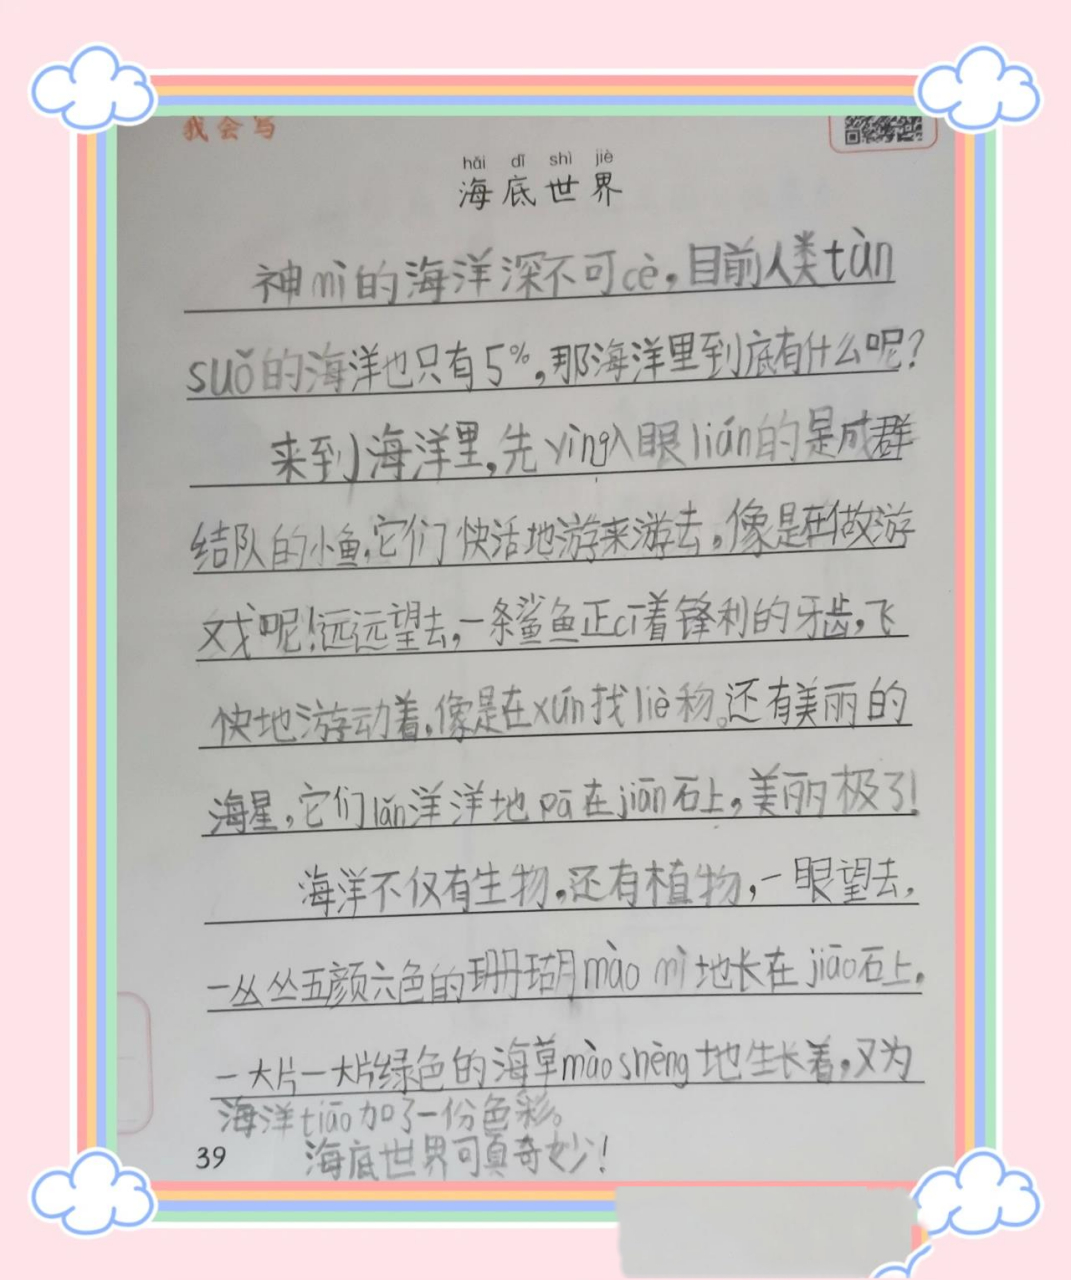 我会写
hǎi dǐ shì jiè
海底世界
神mì的海洋深不可cè,目前人类tàn
suǒ的海洋也只有5%,那海洋里到底有什么呢?
来到海洋里,先yìng入眼lián的是成群
结队的小鱼,它们快活地游来游去,像是在做游
戏呢!远远望去,一条鲨鱼正cī着锋利的牙齿,飞
快地游动着,像是在xún找liè物。还有美丽的
海星,它们lǎn洋洋地pā在jiāo石上,美丽极了!
海洋不仅有生物,还有植物,一眼望去,
一丛丛五颜六色的珊瑚mào mì地长在jiāo石上,
一大片一大片绿色的海草mào shèng地生长着,又为
海洋tiāo加了一份色彩。
海底世界可真奇妙!
39